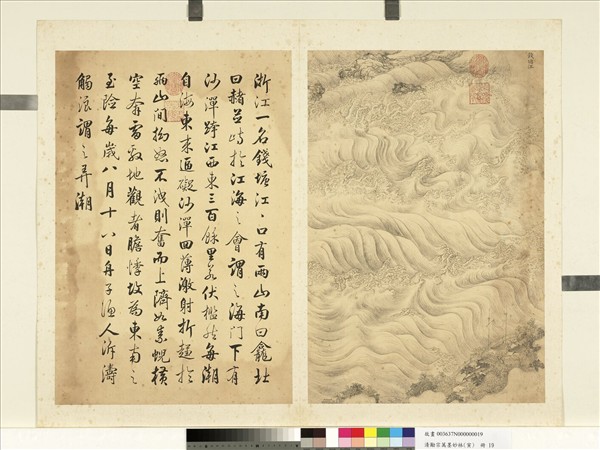 浙江一名錢塘江〻口有兩山南曰龕北
曰赭並峙於江海之會謂之海門下有
沙潬跨江西東三百餘里若伏檻然每潮
自海東來逼礙沙潬回薄激射折趨於
兩山間拗怒不洩則奮而上躋如素蜺橫
空奔雷殷地觀者膽悸故為東南之
至險每歲八月十八日舟子漁人泝濤
觸浪謂之弄潮
錢塘江
故畫 003637N000000019
清勵宗萬墨妙珠林(寅) 冊 19